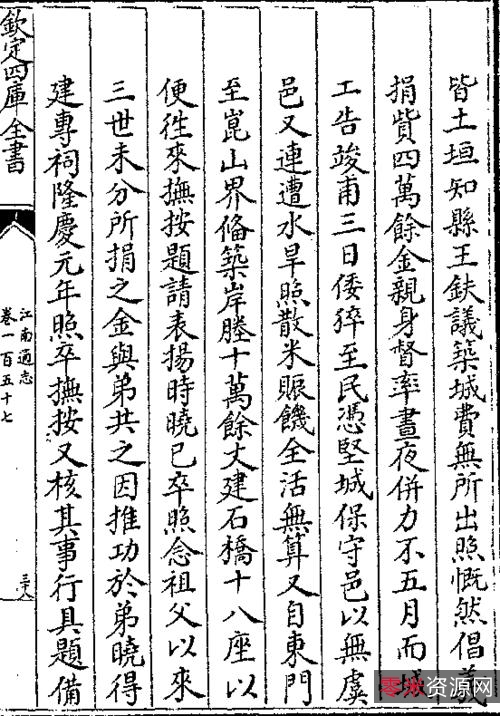 皆土垣知縣王鈇議築城費無所出照慨然倡義
捐貲四萬餘金親身督率晝夜併力不五月而城
工告竣甫三日倭猝至民憑堅城保守邑以無虞
邑又連遭水旱照散米賑饑全活無算又自東門
至崑山界俻築岸塍十萬餘丈建石橋十八座以
便徃來撫按題請表揚時曉已卒照念祖父以來
三世未分所捐之金與弟共之因推功於弟曉得
建專祠隆慶元年照卒撫按又核其事行具題備
欽定四庫全書
江南通志
卷一百五十七
三十八
零六资源网